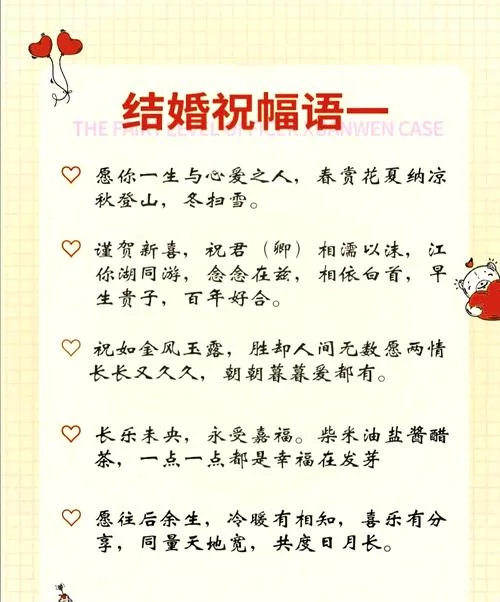 结婚祝幅语一
THE FAIRY LEVEL OFFICER XUANWEN CASE
愿你一生与心爱之人，春赏花夏纳凉
秋登山，冬扫雪。
谨贺新喜，祝君（卿）相濡以沫，江
你湖同游，念念在兹，相依白首，早
生贵子，百年好合。
祝如金风玉露，胜却人间无数愿两情
长长又久久，朝朝暮暮爱都有。
长乐未央，永受嘉福。柴米油盐酱醋
茶，一点一点都是幸福在发芽
愿往后余生，冷暖有相知，喜乐有分
享，同量天地宽，共度日月长。